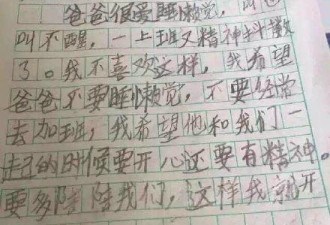 爸爸很爱睡懒觉，叫也
叫不醒，一上班又精神抖数
了。我不喜欢这样，我希望
爸爸不要睡懒觉，不要经常
去加班，我希望他和我们一
起的时候要开心还要有精神。
要多陪陪我们，这样我就开